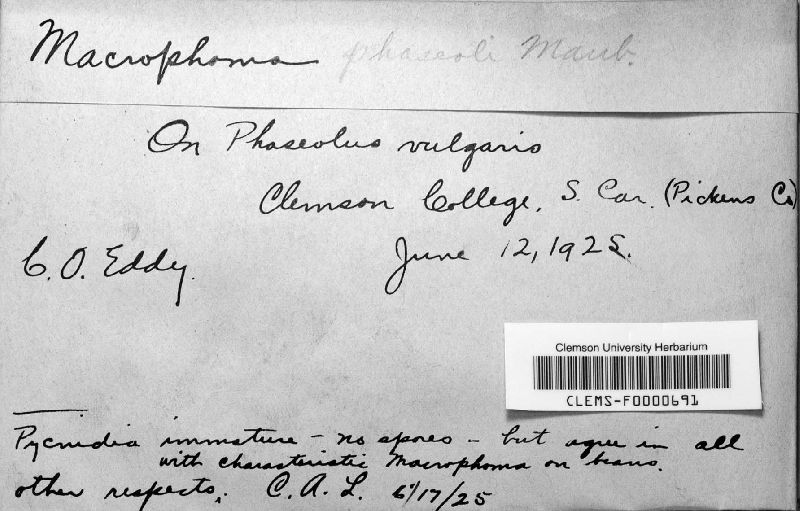 Macrophoma phaseoli Maub.
On Phaseolus vulgaris
Clemson College, S. Car. (Pickens Co)
C. O. Eddy.
June 12, 1925.
Clemson University Herbarium
CLEMS-F0000691
Pycnidia immature - no spores - but agree in all
with characteristic Macrophoma on beans.
other respects, C. A. L. 6/17/25